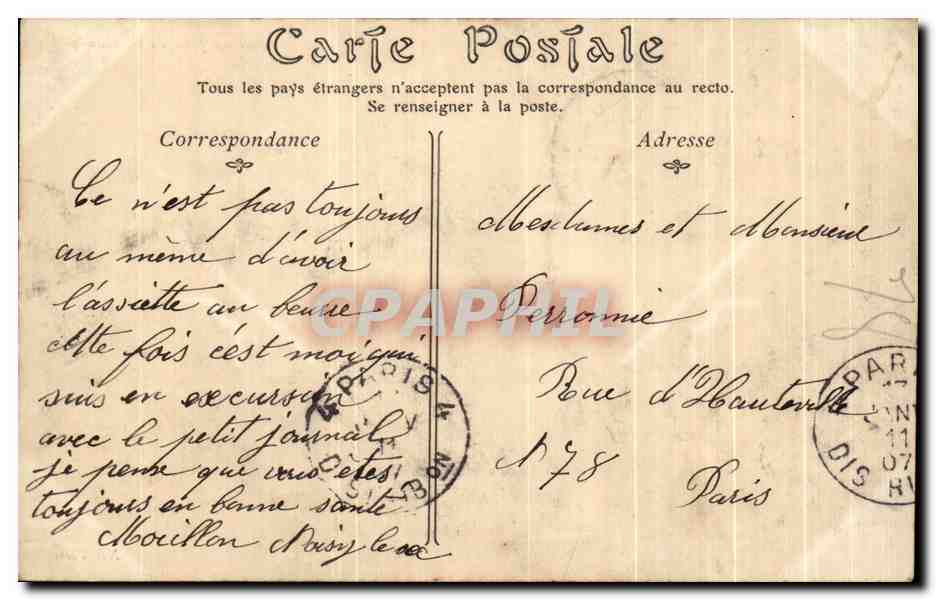 Carte Postale
Tous les pays étrangers n'acceptent pas la correspondance au recto.
Se renseigner à la poste.
Correspondance
Ce n'est pas toujours
au même d'avoir
l'assiette au beurre
cette fois c'est moi qui
suis en excursion
avec le petit journal
je pense que vous etes
toujours en bonne santé
Mouillon Noisy le sec
Adresse
Mesdames et Monsieur
Perronnie
Rue d'Hauteville
N 78
Paris
CPAPHIL
PARIS 4
DISTRIB ON
PAR
JANV
11
07
DIS